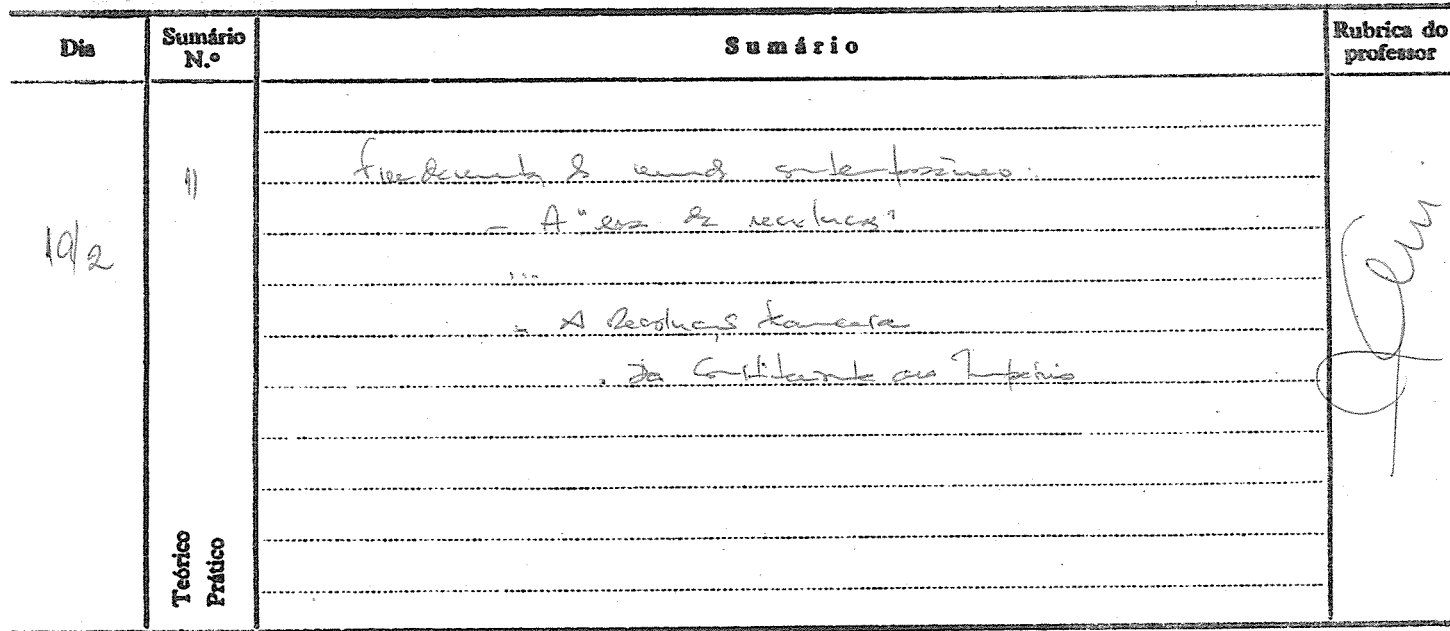 Dia Sumário N.º Sumário Rubrica do professor
19/2
11
Fundamentos do mundo contemporâneo:
- A "era das revoluções"
...
- A Revolução Francesa
. Da Constituinte ao Império
Teórico
Prático